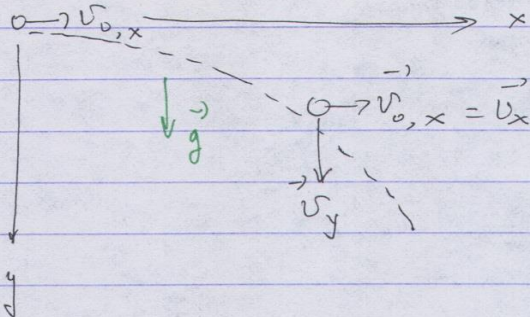 v₀,ₓ x
v⃗₀,ₓ = v⃗ₓ
g⃗
v⃗y
y